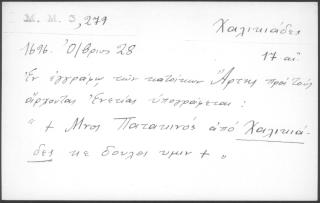 Μ. Μ. 3, 279 Χαλικιάδες
1696. Ὀ/βριος 28 17 αἰ
Ἐν ἐγγράφῳ τῶν κατοίκων Ἄρτης πρὸς τοὺς
ἄρχοντας Ἐνετίας ὑπογράφεται :
" + Μνος Πατατινός ἀπό Χαλικιά-
δες κε δουλος υμιν + "